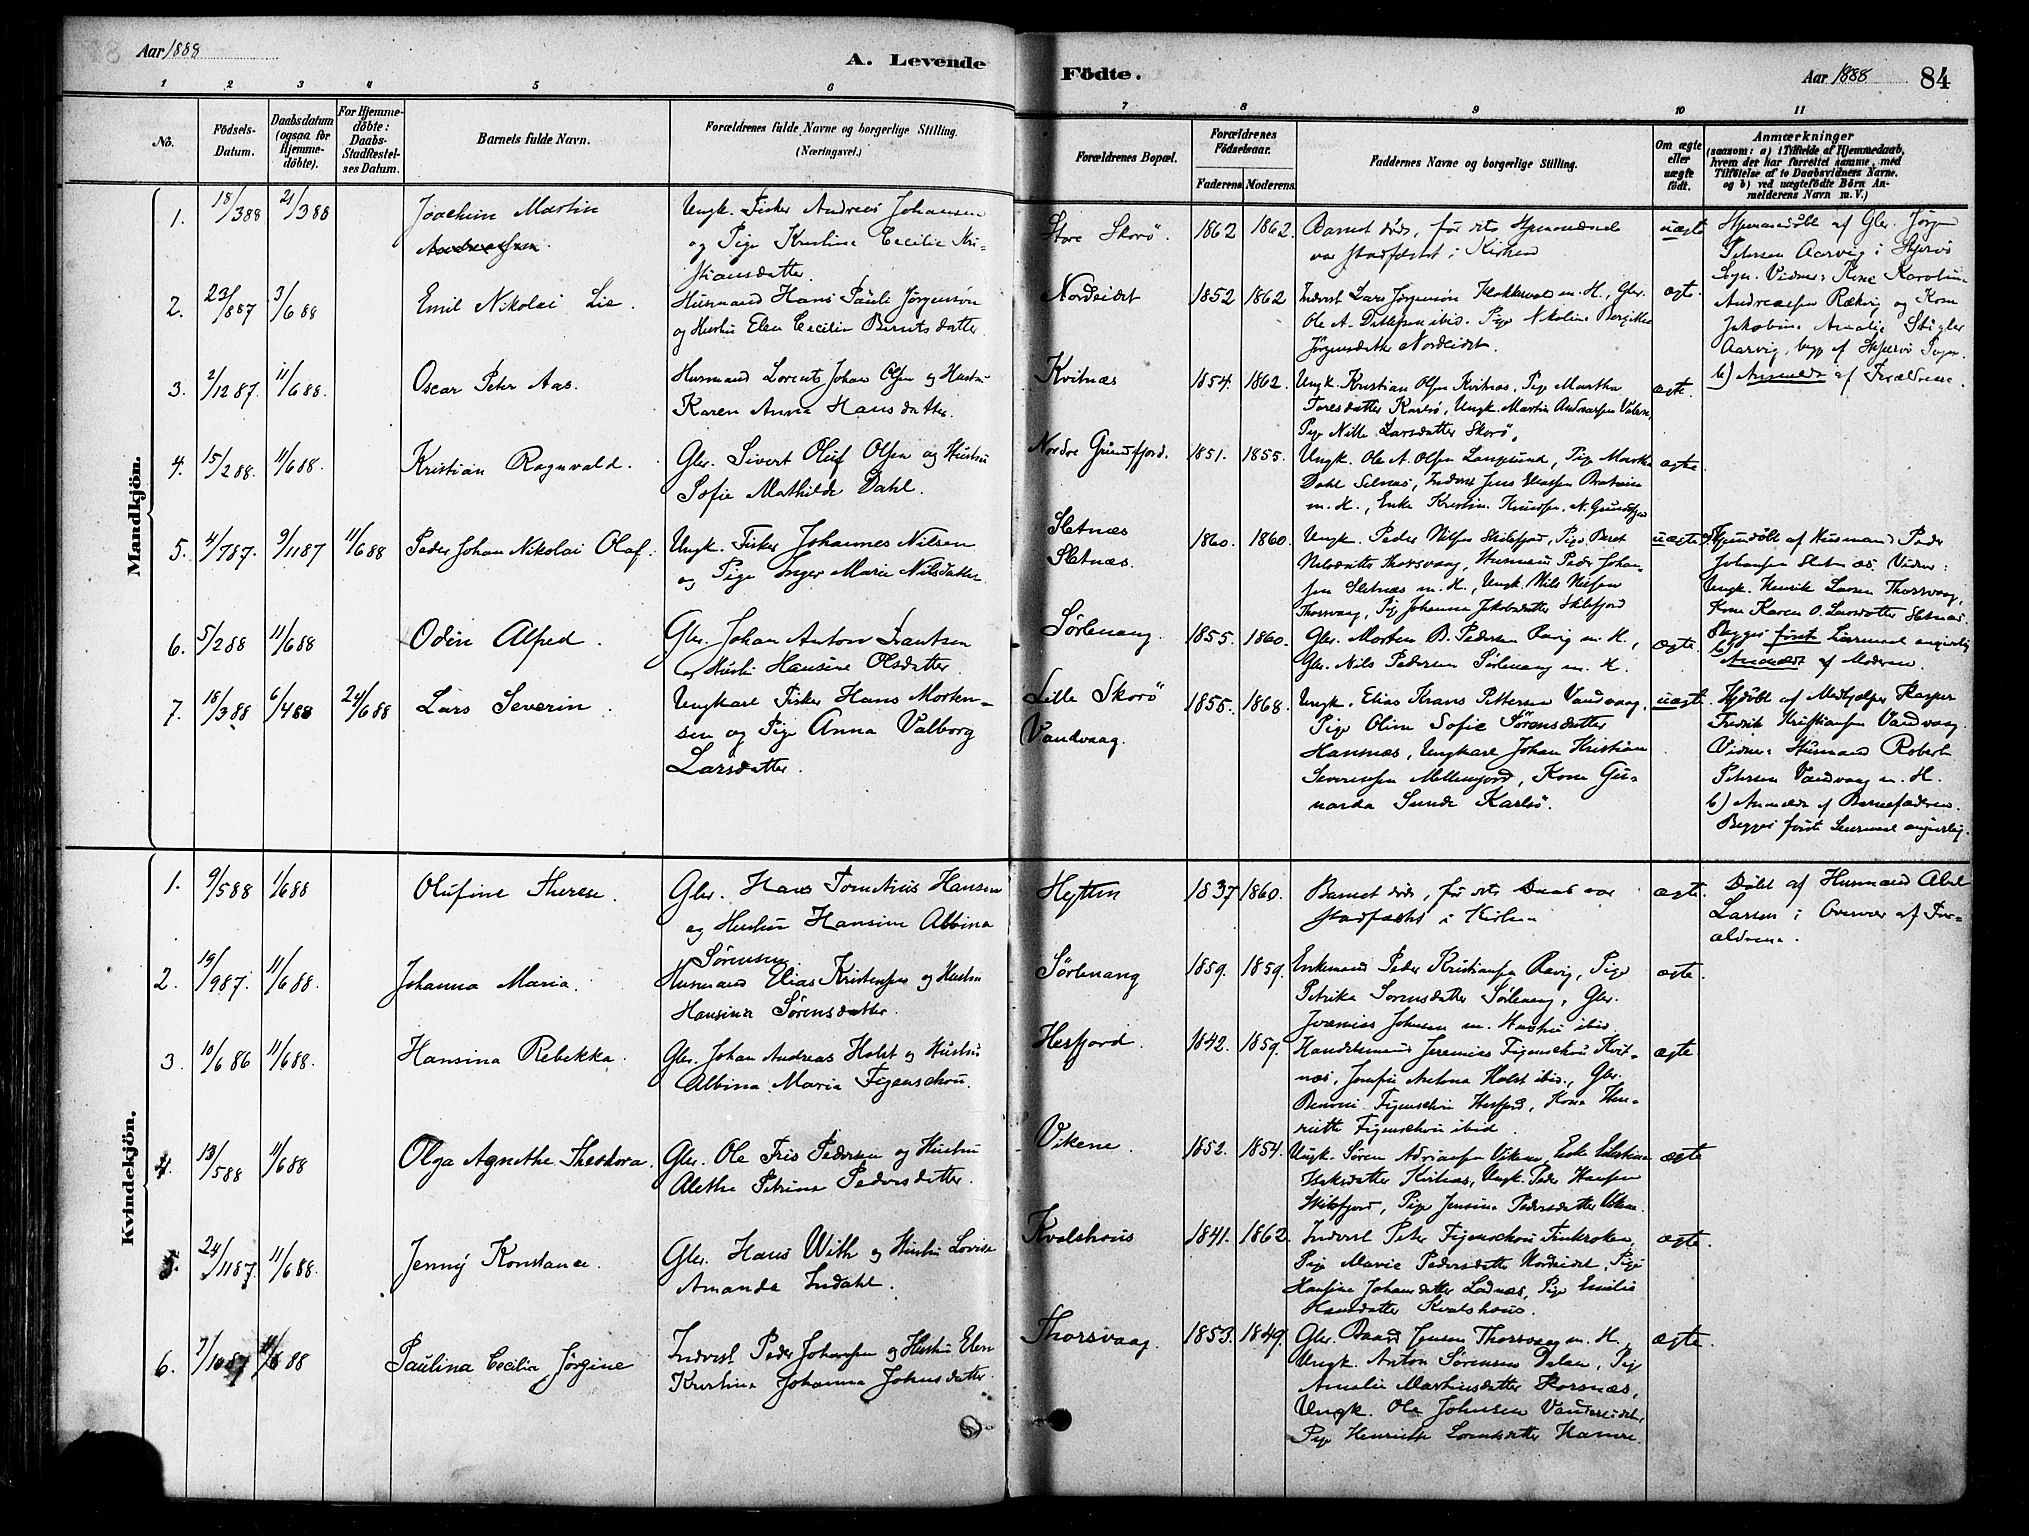 Aar 1888
A. Levende
Födte.
Aar 1888
84
1 2 3 4 5 6 7 8 9 10 11
No.
Födsels-Datum.
Daabsdatum (ogsaa for Hjemmedöbte).
For Hjemmedöbte: Daabs-Stadfestelses Datum.
Barnets fulde Navn.
Forældrenes fulde Navne og borgerlige Stilling.
(Næringsvei.)
Forældrenes Bopæl.
Forældrenes Födselsaar.
Faderens Moderens
Faddernes Navne og borgerlige Stilling.
Om ægte eller uægte födt.
Anmærkninger
(saasom: a) i Tilfælde af Hjemmedaab, hvem der har forrettet samme, med Tilföielse af to Daabsvidners Navne. og b) ved uægtefödte Börn Anmelderens Navn m. V.)
Mandkjön.
1. 18/3 88 21/3 88 Joachim Martin
Ungk. Fisker Andreas Johansen
og Pige Kristine Cecilie Kri-
stiansdatter.
Store Skorø. 1862 1862.
Barnet døde, før dets Hjemmedaab
var stadfæstet i Kirken
uægte
Hjemmedøbt af Gbr. Jørgen
Petersen Aarvig i Skjervø
Sogn. Vidner: Kone
Andreassen Rækvig og Kone
Jakobine Amalie Stigler
Aarvig, begge af Skjervø Sogn.
b) Anmeldt af Forældrene.
2. 23/8 87 3/6 88 Emil Nikolai Lie.
Husmand Hans Pauli Jørgensøn
og Hustru Elen Cecilie Berntsdatter.
Nordeidet 1852 1862
Inderst Lars Jørgensøn m. H., Gbr.
Ole A. Ditlefsen ibid. Pige Nikoline
Jørgensdatter Nordeidet.
ægte.
3. 2/12 87. 11/6 88. Oscar Peter Aas.
Husmand Lorents Johan Olsen og Hustru
Karen Anna Hansdatter.
Kvitnæs 1854. 1862.
Ungk. Kristian Olsen Kvitnæs, Pige Martha
Karlsø, Ungk. Martin Andreassen
Pige Nille Larsdatter Skorø.
ægte.
4. 15/2 88. 11/6 88. Kristian Ragnvald.
Gbr. Sivert Oluf Olsen og Hustru
Sofie Mathilde Dahl.
Nordre Grundfjord. 1851. 1855.
Ungk. Ole A. Olsen Langsund, Pige
Dahl Selnæs, Inderst Jens
m. H., Enke Kristine Knudsen, N. Grundfjord
ægte
5. 4/7 87. 9/11 87 11/6 88 Peder Johan Nikolai Olaf.
Ungk. Fisker Johannes Nilsen
og Pige Inger Marie Nilsdatter
Sletnæs
Sletnæs. 1860. 1860.
Ungk. Peder Nilsen Skibsfjord, Pige Beret
Nilsdatter Thorsvaag, Husmand Peder Johan-
sen Sletnæs m. H., Ungk. Nils Nilsen
Thorsvaag, Pige Johanna Jakobsdatter Skibsfjord
uægte
Hjemdøbt af Husmand Peder
Johansen Sletnæs. Vidner:
Ungk. Henrik Larsen Thorsvaag,
Kone Karen O. Larsdatter Sletnæs
Begges første Leiermaal angivelig
b) Anmeldt af Moderen.
6. 5/2 88 11/6 88 Odin Alfred.
Gbr. Johan Anton Frantsen
og Hustru Hansine Olsdatter
Sørlenang. 1855. 1860.
Gbr. Morten B. Pedersen Ravig m. H.,
Gbr. Nils Pedersen Sørlenang m. H.
ægte.
7. 18/3 88 6/4 88 24/6 88 Lars Severin.
Ungkarl Fisker Hans Morten-
sen og Pige Anna Valborg
Larsdatter.
Lille Skorø
Vandvaag. 1855. 1868.
Ungk. Elias Krans Pettersen Vandvaag,
Pige Oline Sofie Sørensdatter
Hannæs, Ungkarl Johan Kristian
Severinsen Mellemjord, Kone Gu-
narda Sunde Karlsø.
uægte
Hjdøbt af Medhjælper Kasper
Fredrik Kristiansen Vandvaag.
Vidner: Husmand Robert
Petersen Vandvaag m. H.
b) Anmeldt af Barnefaderen.
Begges første Leiermaal angivelig.
Kvindekjön.
1. 9/5 88 1/6 88 Olufine Therese.
Gbr. Hans Hansen
og Hustru Hansine Albina
Sørensen.
1837 1860.
Barnet døde, før dets Daab var
stadfæstet i Kirken
ægte.
Døbt af Husmand Abel
Larsen i Overvær af For-
ældrene.
2. 19/9 87. 11/6 88. Johanna Maria.
Husmand Elias Kristensen og Hustru
Hansina Sørensdatter.
Sørlenang 1859. 1859.
Enkemand Peder Kristiansen Ravig, Pige
Petrika Sørensdatter Sørlenang, Gbr.
Johnsen m. Hustru ibid
ægte.
3. 10/6 86 11/6 88. Hansina Rebekka.
Gbr. Johan Andreas Holst og Hustru
Albina Maria Figenschou.
Hesfjord. 1842. 1859.
Handelsmand Jeremias Figenschou Kvit-
næs, Josefie Antona Holst ibid., Gbr.
Benoni Figenschou Hesfjord, Kone Hen-
riette Figenschou ibid.
ægte
4. 13/5 88 11/6 88 Olga Agnethe Theodora.
Gbr. Ole Fris Pedersen og Hustru
Alethe Petrine Pedersdatter.
Vikene. 1852. 1854.
Ungk. Søren Adriansen Viken, Enke
Kvitnæs, Ungk. Peder Hansen
Skibsfjord, Pige Jensina Pedersdatter Viken.
ægte
5. 24/11 87. 11/6 88. Jenny Konstance.
Gbr. Hans With og Hustru Lovise
Amanda Indahl.
Kvalshaus 1841. 1862.
Inderst Peter Figenschou Finkroken,
Pige Marie Pedersdatter Nordeidet, Pige
Hansine Johansdatter Ladnæs, Pige Emilie
Hansdatter Kvalshaus.
ægte.
6. 7/10 87 11/6 88 Paulina Cecilia Jørgine
Inderst Peder Johansen og Hustru Elen
Kristina Johanna Johnsdatter.
Thorsvaag. 1853. 1849.
Gbr. Baard Jensen Thorsvaag m. H.,
Ungk. Anton Sørensen Dalen, Pige
Amalie Martinsdatter Korsnæs,
Ungk. Ole Johnsen Vandereidet,
Pige Henrikke Lorentsdatter Hamre.
ægte.